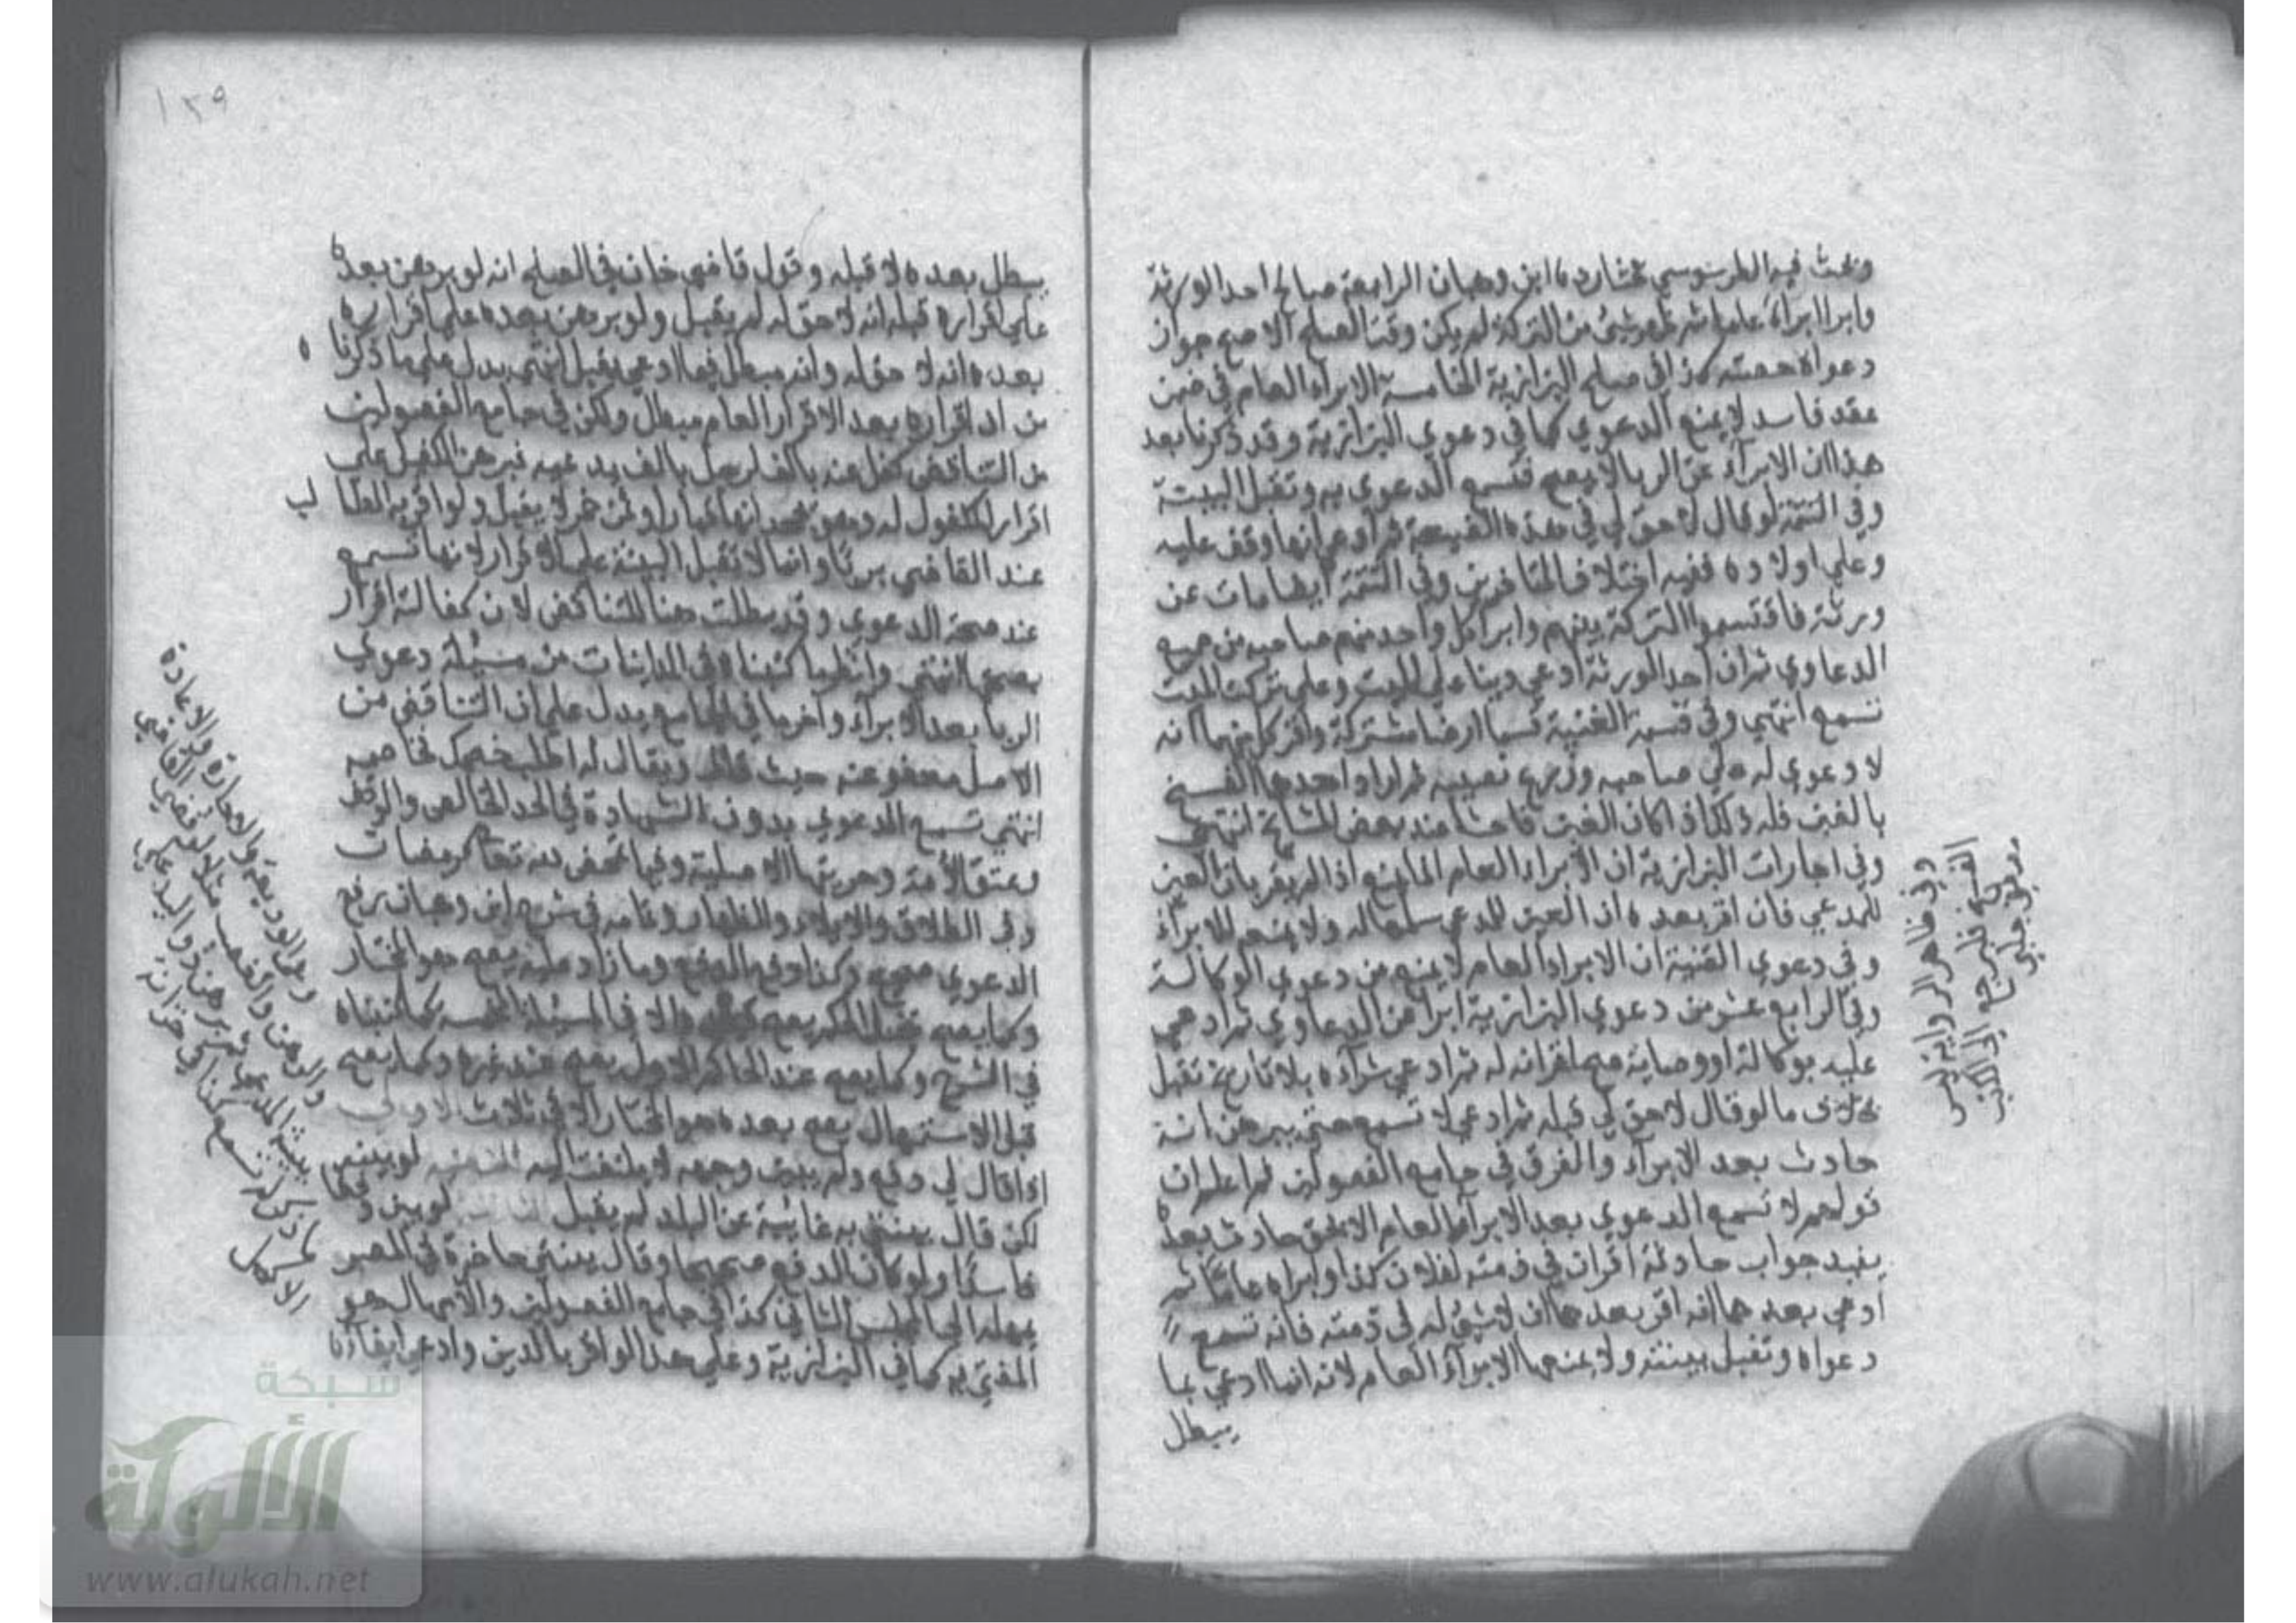 وبحث فيه الطرسوسي بحثا رده ابن وهبان الرابعة صالح احد الورثة
وابرا ابراء عاما ثم ظهر شئ من التركة لم يكن وقت الصلح الاصح جواز
دعواه حصته كذا في صلح البزازية الخامسة الابراء العام في ضمن
عقد فاسد لا يمنع الدعوي كما في دعوي البزازية وقد ذكرنا بعد
هذا ان الابرآء عن الربا لا يصح فتسمع الدعوي به وتقبل البينة
وفي التتمة لو قال لا حق لي في هذه الضيعة ثم ادعي انها وقف عليه
وعلي اولاده ففيه اختلاف المتاخرين وفي التتمة ايضا مات عن
ورثة فاقتسموا التركة بينهم وابرا كل واحد منهم صاحبه من جميع
الدعاوي ثم ان احد الورثة ادعي دينا علي الميت وعلي تركة الميت
تسمع انتهي وفي قسمة القنية قسما ارضا مشتركة واقر كل منهما انه
لا دعوي له علي صاحبه وزرع نصيبه ثم اراد احدهما الفسخ
بالغبن فله ذلك اذا كان الغبن فاحشا عند بعض المشايخ انتهي
وفي اجارات البزازية ان الابراء العام انما يمنع اذا لم يقر بان العين
للمدعي فان اقر بعده ان العين للمدعي سلمها له ولا يمنعه الابرآء
وفي دعوي القنية ان الابراء العام لا يمنع من دعوي الوكالة
وفي الرابع عشر من دعوي البزازية ابراه عن الدعاوي ثم ادعي
عليه بوكالة او وصاية صح اقر انه له ثم ادعي شرآءه بلا تاريخ تقبل
بخلاف ما لو قال لا حق لي قبله ثم ادعي لا تسمع حتي يبرهن انه
حادث بعد الابرآء والفرق في جامع الفصولين ثم اعلم ان
قولهم لا تسمع الدعوي بعد الابرآء العام الا بحق حادث بعده
يفيد جواب حادثة اقر ان في ذمته لفلان كذا وابراه عاما ثم
ادعي بعدهما انه اقر بعدها ان لا شئ له في ذمته فانه تسمع
دعواه وتقبل بينته ولا يمنعها الابرآء العام لانه انما ادعي بما
يبطل
وفي ظاهر الرواية ليس
١٣٩
يبطل بعده لا قبله وقول قاضي خان في الصلح انه لو برهن بعده
علي اقراره قبله انه لا حق له لم يقبل ولو برهن بعده علي اقراره
بعده انه لا حق له وانه مبطل فيما ادعي يقبل انتهي يدل علي ما ذكرنا
من ان اقراره بعد الاقرار العام مبطل ولكن في جامع الفصولين
من التناقض كفل عنه بالف لرجل بالف يدعيه فبرهن الكفيل علي
اقرار المكفول له وهو يجحد انها قمار او ثمن خمر لا يقبل ولو اقر به الطالب
عند القاضي برئا وانما لا تقبل البينة علي الاقرار لانها تسمع
عند صحة الدعوي وقد بطلت هنا للتناقض لان كفالته اقرار
بصحتها انتهي وانظر ما كتبنا في المداينات من مسئلة دعوي
الربا بعد الابرآء وآخر ما في الجامع يدل علي ان التناقض من
الاصل معفو عنه حيث قال ويقال له اطلب خصمك فخاصمه
انتهي تسمع الدعوي بدون الشهادة في الحد الخالص والوقف
وعتق الامة وحريتها الاصلية وفيما تمحض لله تعالي كرمضات
وفي الطلاق والايلاء والظهار وتمامه في شرح ابن وهبان برفع
الدعوي صحيح وكذا دفع الدفع وما زاد عليه يصح هو المختار
وكما يصح قبل الحكم يصح بعده الا في المسئلة المخمسة كما كتبناه
في الشرح وكما يصح عند الحاكم الاول يصح عند غيره وكما يصح
قبل الاستمهال يصح بعده هو المختار الا في ثلاث الاولي
اذا قال لي دفع ولم يبين وجهه لا يلتفت اليه الثانية لو بينه
لكن قال بينتي به غايئبة عن البلد لم يقبل الثالثة لو بين دفعا
فاسدا ولو كان الدفع صحيحا وقال بينتي حاضرة في المصر
يمهله الي المجلس الثاني كذا في جامع الفصولين والامهال هو
المفتي به كما في البزازية وعلي هذا لو اقر بالدين وادعي ايفاءه
شبكة
الألوكة
www.alukah.net